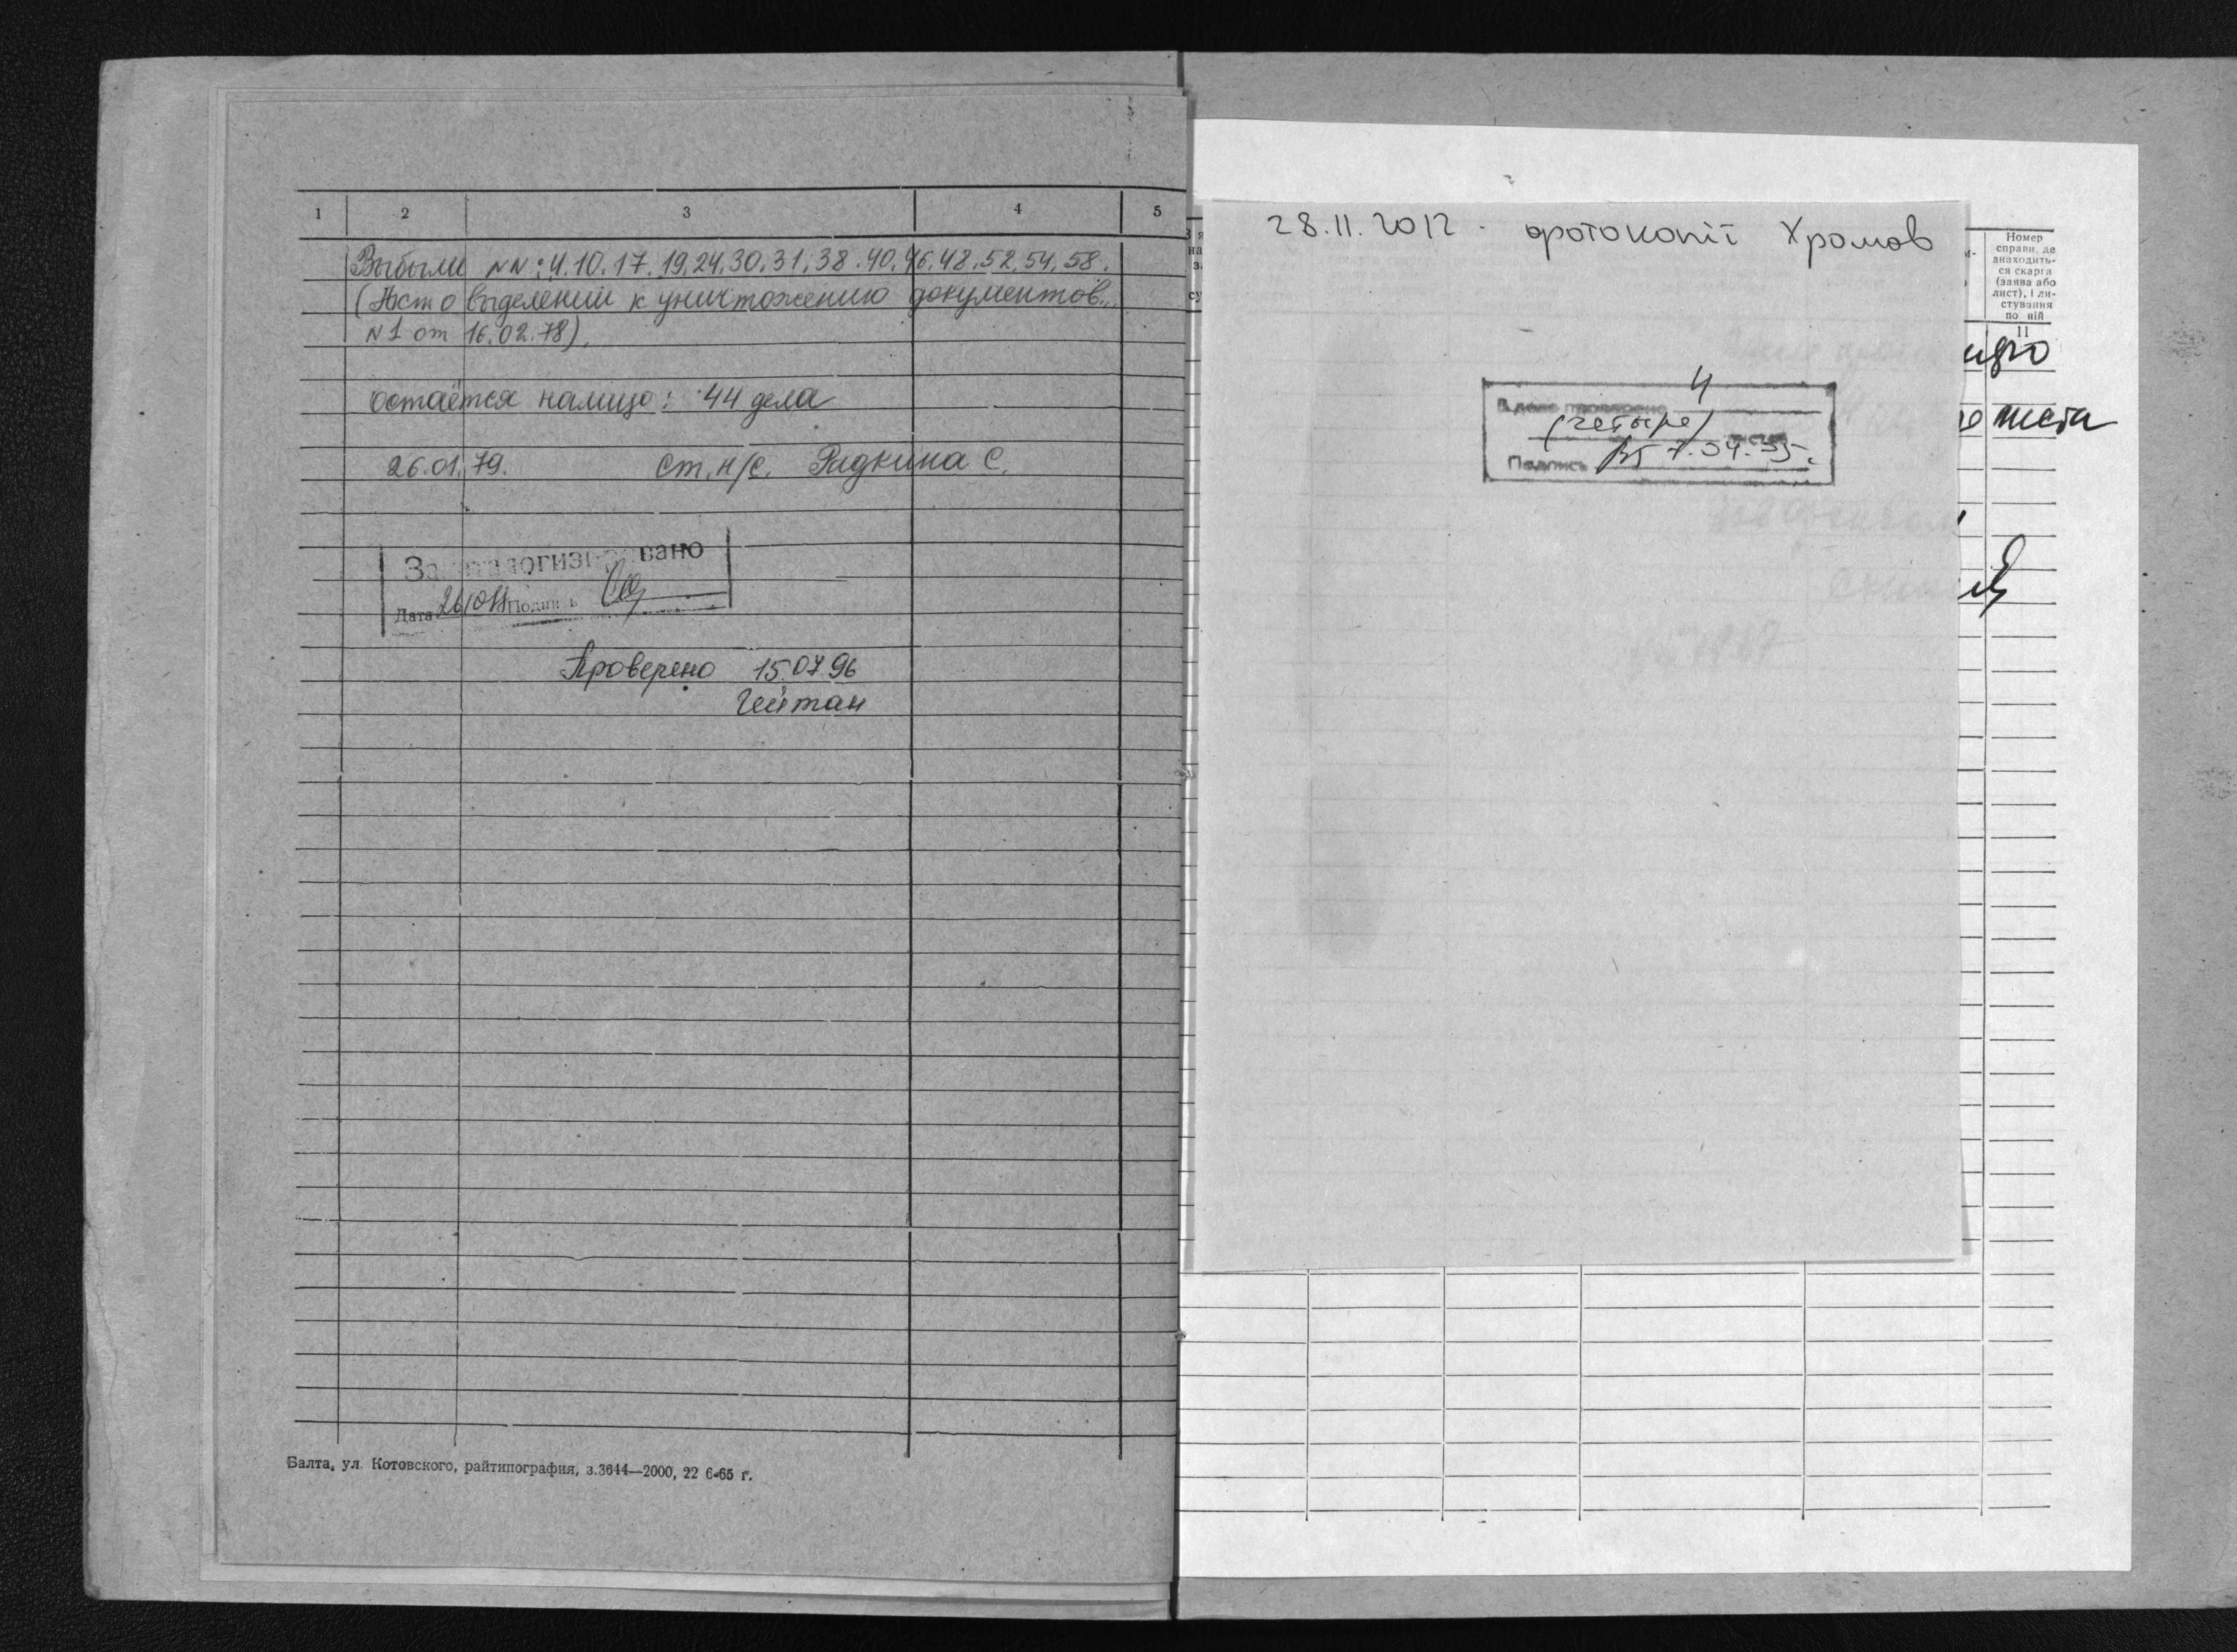 1 2 3 4 5
Выбыли NN: 4.10.17.19.24.30.31.38.40.46.48.52.54.58.
(Акт о выделении к уничтожению документов
N1 от 16.02.78).
остаётся налицо: 44 дела
26.01.79. Ст. н/с. Радкина С.
Закаталогизировано
Дата Подпись
Проверено 15.07.96
Гейтан
Балта, ул. Котовского, райтипография, з.3644—2000, 22 6-65 г.
28.11.2012 - фотокопії Хромов
4
В деле проверено
(четыре)
листов
Подпись 7.04.95.
Номер
справи, де
знаходить-
ся скарга
(заява або
лист), і ли-
стування
по ній
11